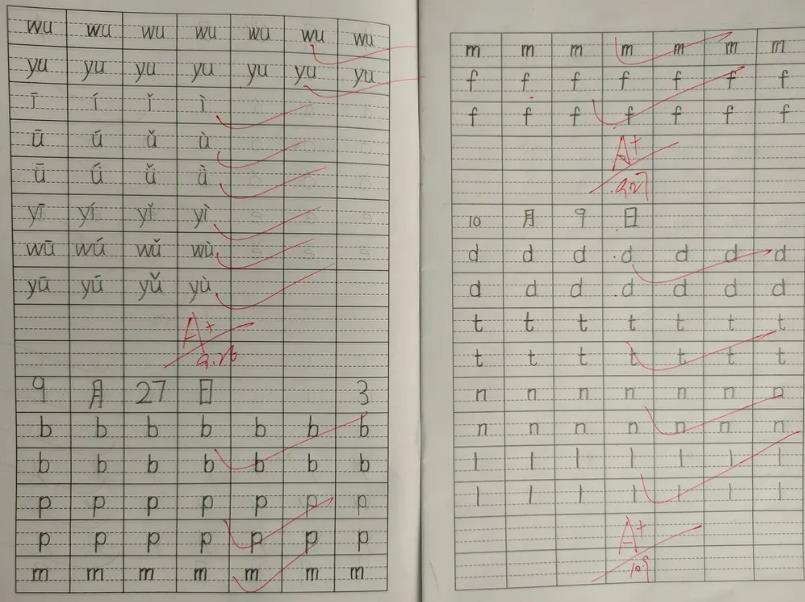 wu wu wu wu wu wu wu
yu yu yu yu yu yu yu
ī í ǐ ì
ū ú ǔ ù
ǖ ǘ ǚ ǜ
yī yí yǐ yì
wū wú wǔ wù
yū yú yǔ yù
A+
9.26
9月27日 3
b b b b b b b
b b b b b b b
p p p p p p p
p p p p p p p
m m m m m m m
m m m m m m m
f f f f f f f
f f f f f f f
A+
9.27
10月9日
d d d d d d d
d d d d d d d
t t t t t t t
t t t t t t t
n n n n n n n
n n n n n n n
l l l l l l l
l l l l l l l
A+
10.9